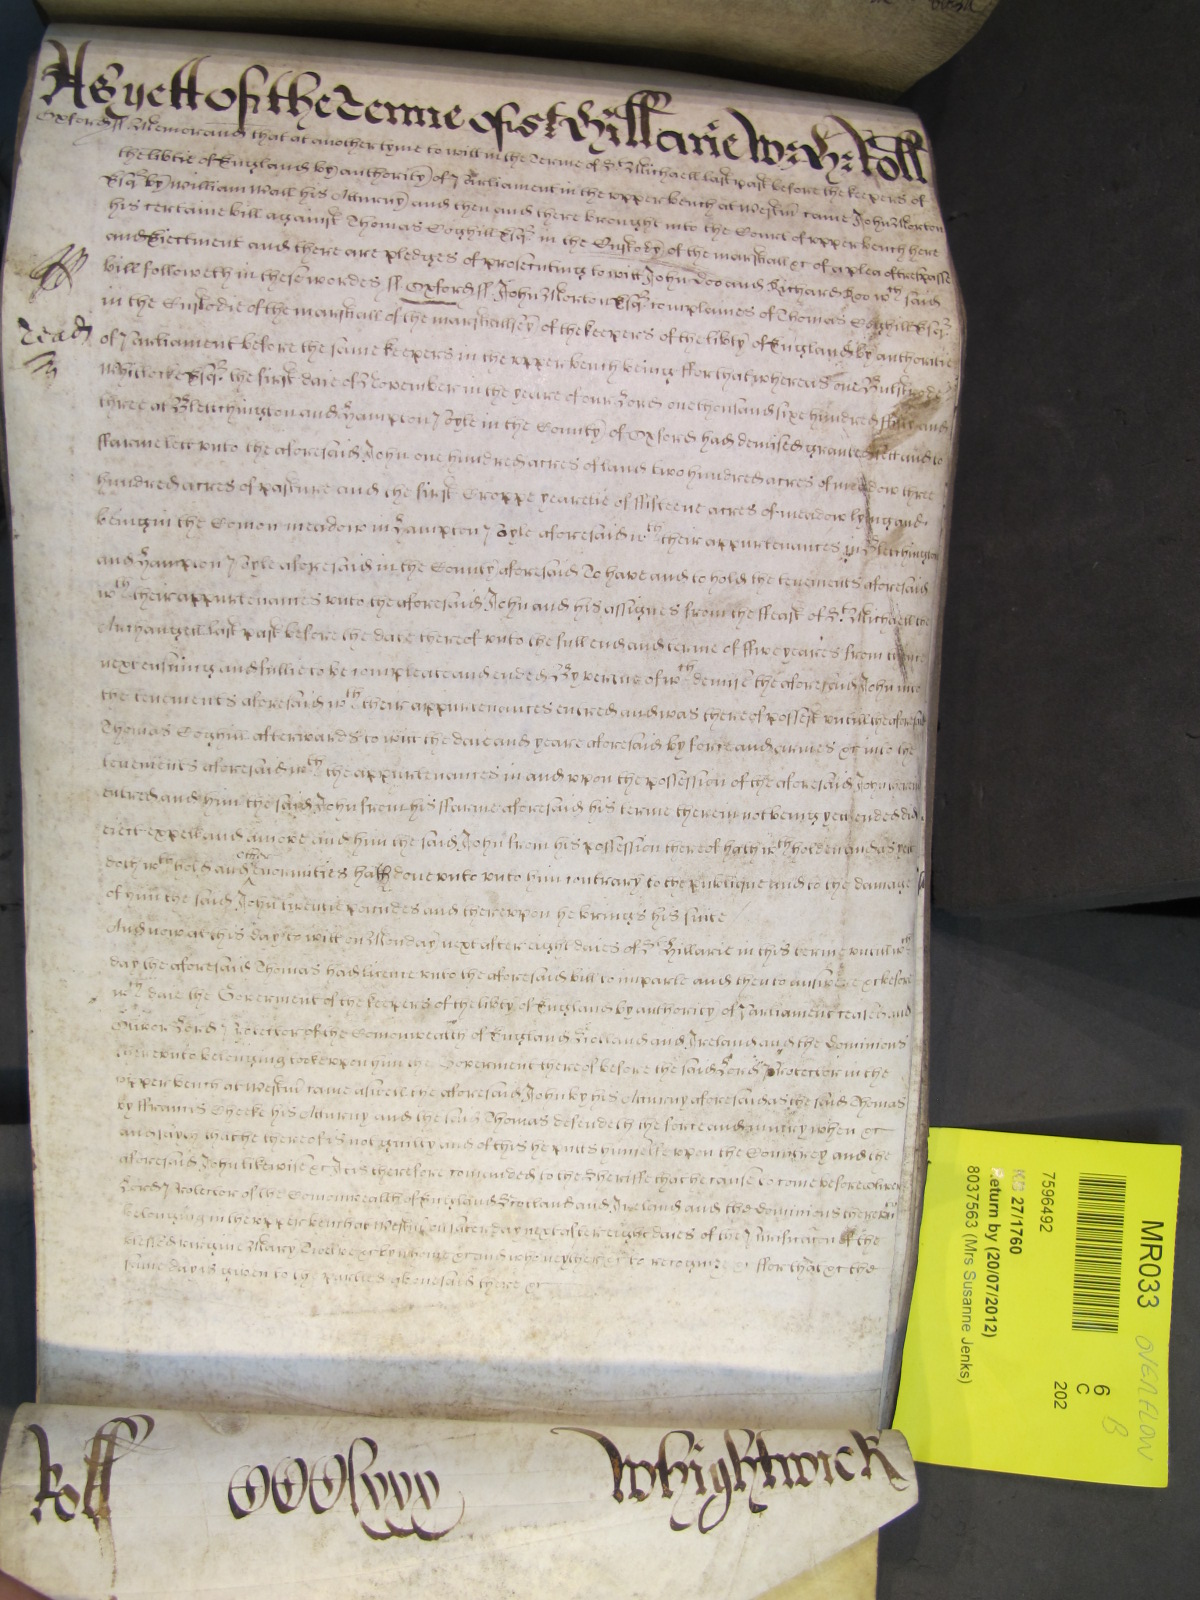 As yett of the Terme of st Hillarie Wz: Hz: Roll
Oxford ss Memorand that at another tyme to witt in the Terme of St Michaell last past before the keepers of
the libtie of England by authority of Parliament in the vpper bench at Westm came John Morton
Esqr by William Wall his Atturny and then and there brought into the Court of vpper bench here
his certaine bill against Thomas Coghill Esqr in the Custody of the marshall &c of a plea of trespasse
and Eiectment and there are pledges of prosecuting to witt John Doo and Richard Roo wch said
bill followeth in these wordes ss Oxford ss John Morton Esqr complaines of Thomas Coghill Esqr
in the Custodie of the marshall of the marshallsey of the keepers of the libty of England by authoritie
of Parliament before the same keepers in the vpper bench being ffor that whereas one Bulstrode
Whitlocke Esqr the first daie of November in the yeare of our Lord one thousand six hundred fifty and
three at Bletchington and Hampton Poyle in the County of Oxford had demised granted lett and to
ffarme lett vnto the aforesaid John one hundred acres of land two hundred acres of meadow three
hundred acres of pasture and the first Croppe yearelie of fifteene acres of meadow lying and
being in the Comon meadow in Hampton Poyle aforesaid wth their appurtenances in Bletchington
and Hampton Poyle aforesaid in the County aforesaid To have and to hold the tenements aforesaid
wth their appurtenances vnto the aforesaid John and his assignes from the ffeast of St Michaell the
Archangell last past before the date thereof vnto the full end and terme of ffive yeares from thence
next ensuing and fullie to be compleate and ended By vertue of wch demise the aforesaid John into
the tenements aforesaid wth their appurtenances entred and was thereof possest vntill the aforesaid
Thomas Coghill afterwards to witt the daie and yeare aforesaid by force and armes &c into the
tenements aforesaid wth the appurtenances in and vpon the possession of the aforesaid John thereof
entred and him the said John from his ffarme aforesaid his terme therein not being yet ended did
eiect expell and amove and him the said John from his possession thereof hath wth holden and as yett
doth wth hold and other Enormities hath done vnto vnto him contrary to the publique and to the damage
of him the said John twentie poundes and therevpon he brings his suite
And now at this day to witt on Monday next after eight daies of St Hillarie in this terme vntill wch
day the aforesaid Thomas had licence vnto the aforesaid bill to imparle and then to answere &c before
wch daie the Goverment of the keepers of the libty of England by authority of Parliament ceased and
Oliver Lord Protector of the Comonwealth of England Scotland and Ireland and the dominions
therevnto belonging tooke vpon him the Goverment thereof before the said Lord Protector in the
vpper bench at Westm came aswell the aforesaid John by his Atturny aforesaid as the said Thomas
by ffrancis Cheeke his Atturny and the said Thomas defendeth the force and iniury when &c
and sayth that he thereof is not guilty and of this he putts himselfe vpon the Countrey and the
aforesaid John likewise &c It is therefore comanded to the Sheriffe that he cause to come before Oliver
Lord Protector of the Comonwealth of England Scotland and Ireland and the dominions therevnto
belonging in the vpper bench at Westm on saterday next after eight daies of the Purificacon of the
blessed virgine Mary Twelve &c by whome &c and who neyther &c to recognize &c ffor that &c the
same day is given to the parties abovesaid there &c
Roll
Whightwick
MR033
OVERFLOW
B
6
C
202
7596492
KB 27/1760
Return by (20/07/2012)
8037563 (Mrs Susanne Jenks)